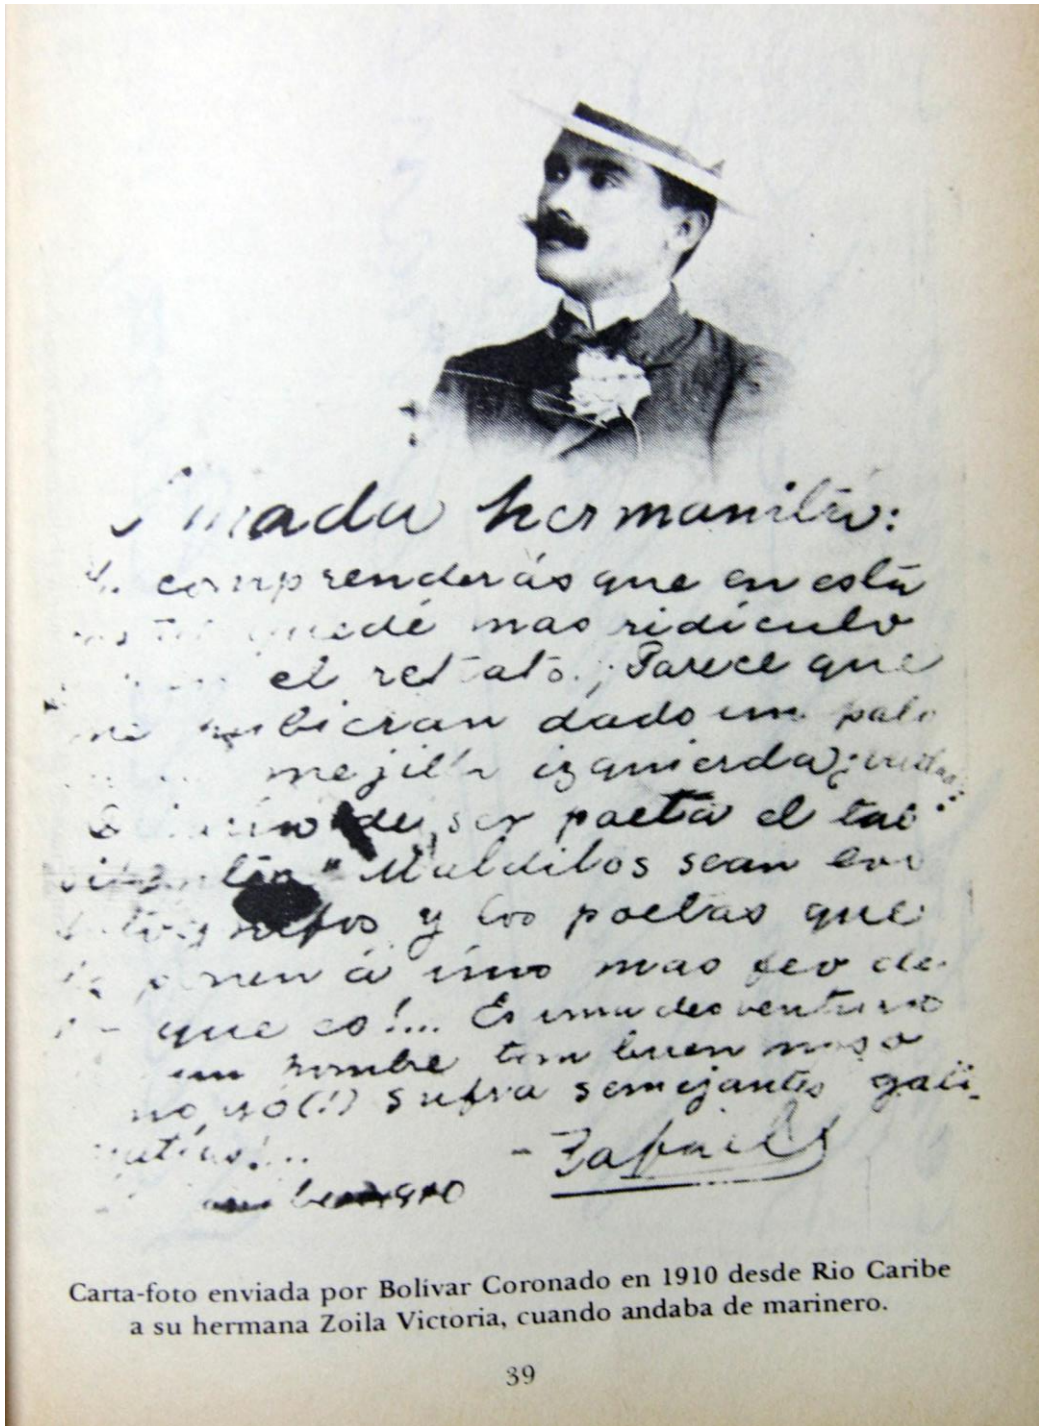 Amada hermanita:
comprenderás que en esta
quedé mas ridículo
el retrato. ¡Parece que
hubieran dado un palo
mejilla izquierda ¿verdad?
de ser poeta el tal
" Malditos sean los
y los poetas que
ponen á uno mas feo de
que es!... Es una desventura
hombre tan buen moso
yó(!) sufra semejantes gali-
matías!...
- Rafael
1910
Carta-foto enviada por Bolívar Coronado en 1910 desde Rio Caribe
a su hermana Zoila Victoria, cuando andaba de marinero.
39